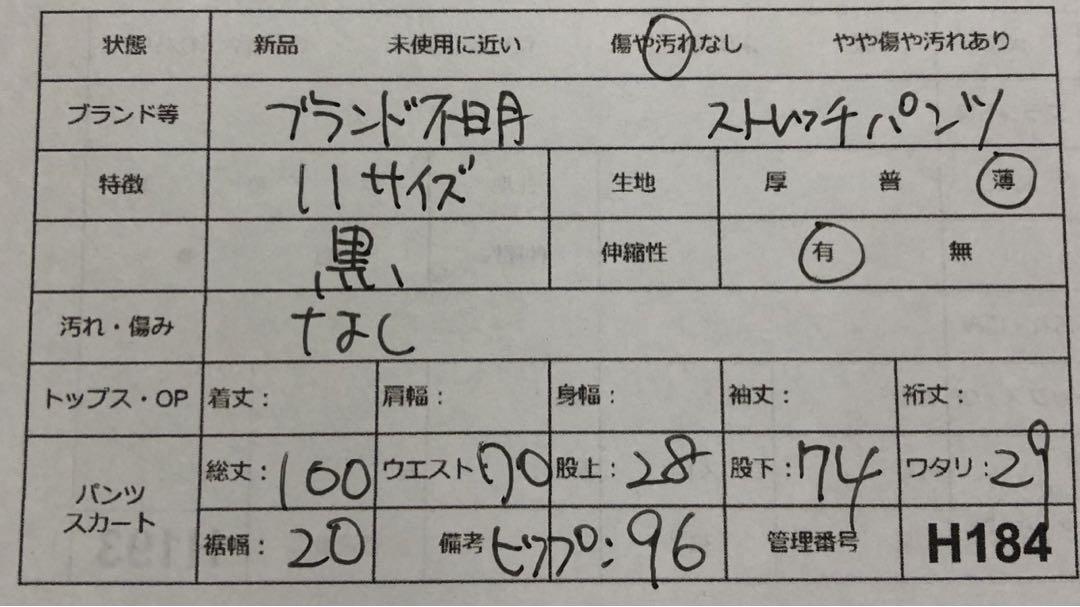 状態 新品 未使用に近い 傷や汚れなし やや傷や汚れあり
ブランド等 ブランド不明 ストレッチパンツ
特徴 11サイズ 生地 厚 普 薄
黒、 伸縮性 有 無
汚れ・傷み なし
トップス・OP 着丈： 肩幅： 身幅： 袖丈： 裄丈：
パンツ
スカート
総丈：100 ウエスト70 股上：28 股下：74 ワタリ：29
裾幅：20 備考 ヒップ：96 管理番号 H184